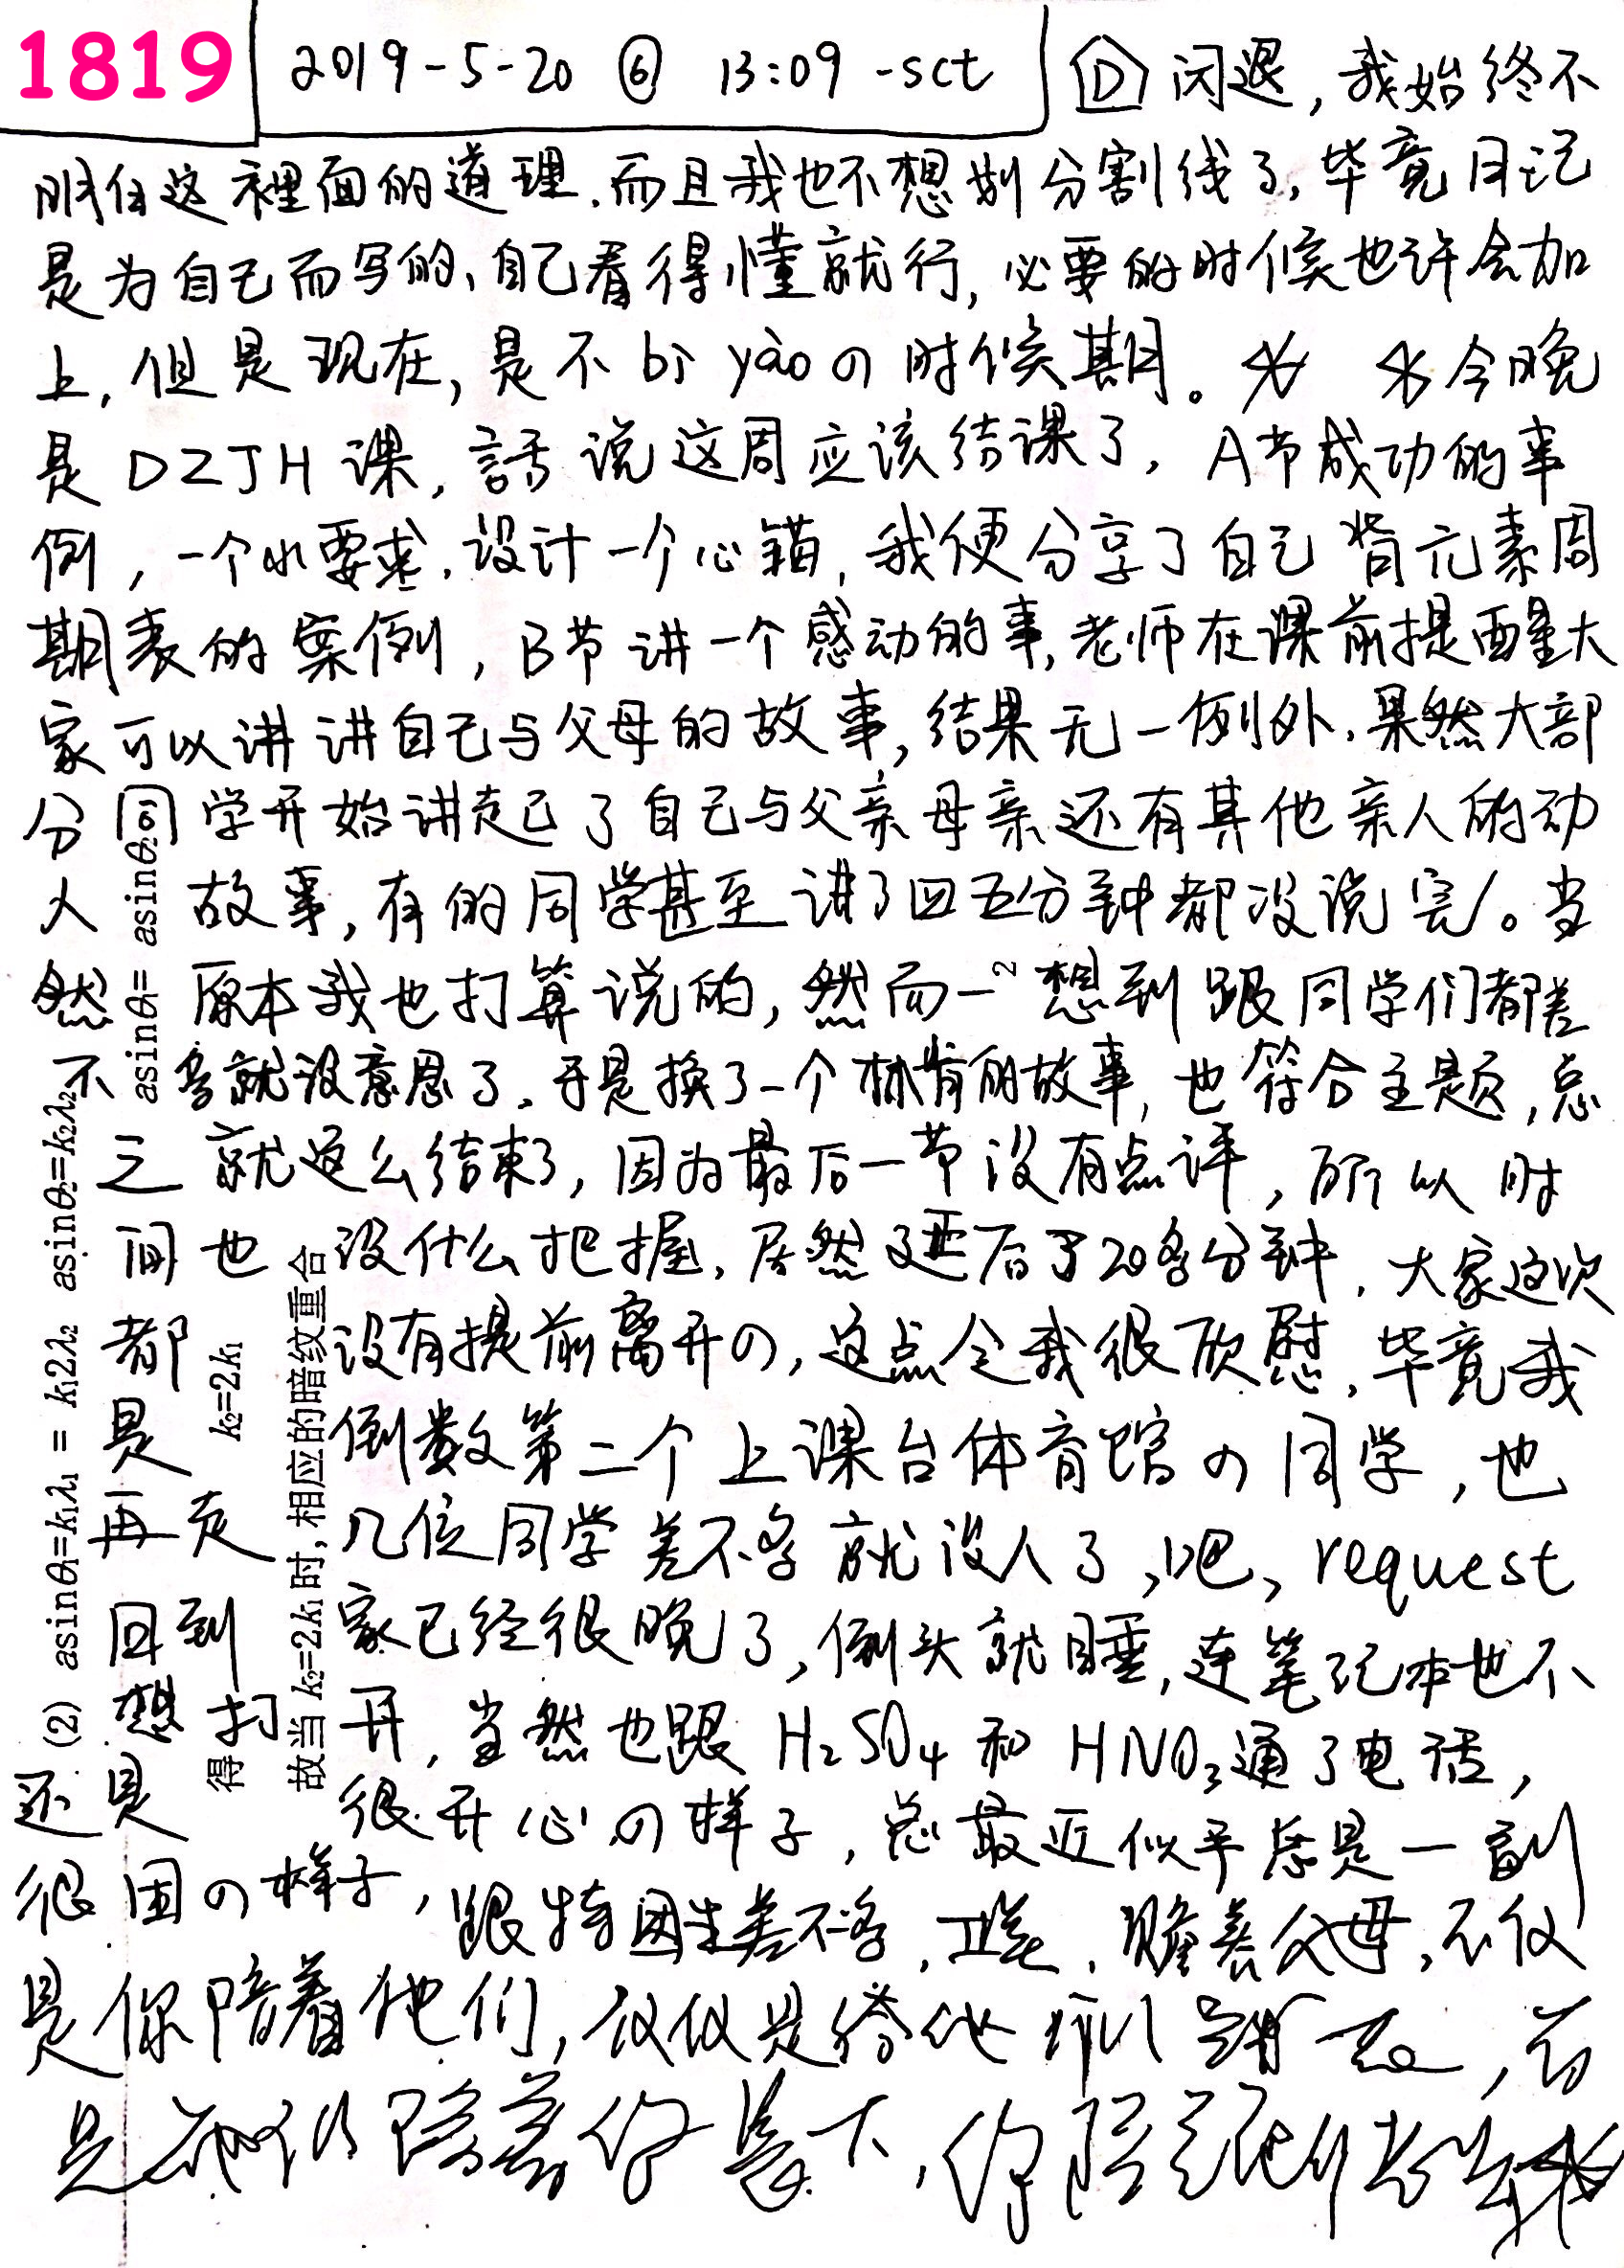 1819 2019-5-20 ⑥ 13:09 -sct D 闭退，我始终不
明白这裡面的道理.而且我也不想划分割线了,毕竟日记
是为自己而写的、自己看得懂就行,必要的时候也许会加
上,但是现在,是不bì yào の时候期。 今晚
是DZJH课,話说这周应该结课了,A节成功的事
例,一个小要求.设计一个心锚,我便分享了自己背元素周
期表的案例,B节讲一个感动的事,老师在课前提醒大
家可以讲讲自己与父母的故事,结果无一例外.果然大部
分同学开始讲起了自己与父亲母亲还有其他亲人的动
人故事,有的同学甚至讲了四五分钟都没说完。当
然原本我也打算说的,然而一想到跟同学们都差
不多就没意思了.于是换了一个 的故事,也符合主题,总
之就这么结束了,因为最后一节没有点评,所以时
间也没什么把握,居然延后了20多分钟.大家这次
都没有提前离开の,这点令我很欣慰.毕竟我
是倒数第二个上课台体育馆の同学,也
再走几位同学差不多就没人了,吧,request
回到家已经很晚了,倒头就睡,连笔记本也不
想打开,当然也跟H₂SO₄和HNO₃通了电话,
还是很开心の样子,总最近似乎总是一副
很困の样子,跟 差不多, 赡养父母,不仅
是你陪着他们,仅仅是 ,而
是他们陪着你长大,你陪着他们
asinθ₁= asinθ₂
(2) asinθ₁=k₁λ₁ = k₁2λ₂ asinθ₂=k₂λ₂
得 k₂=2k₁
故当 k₂=2k₁ 时,相应的暗纹重合